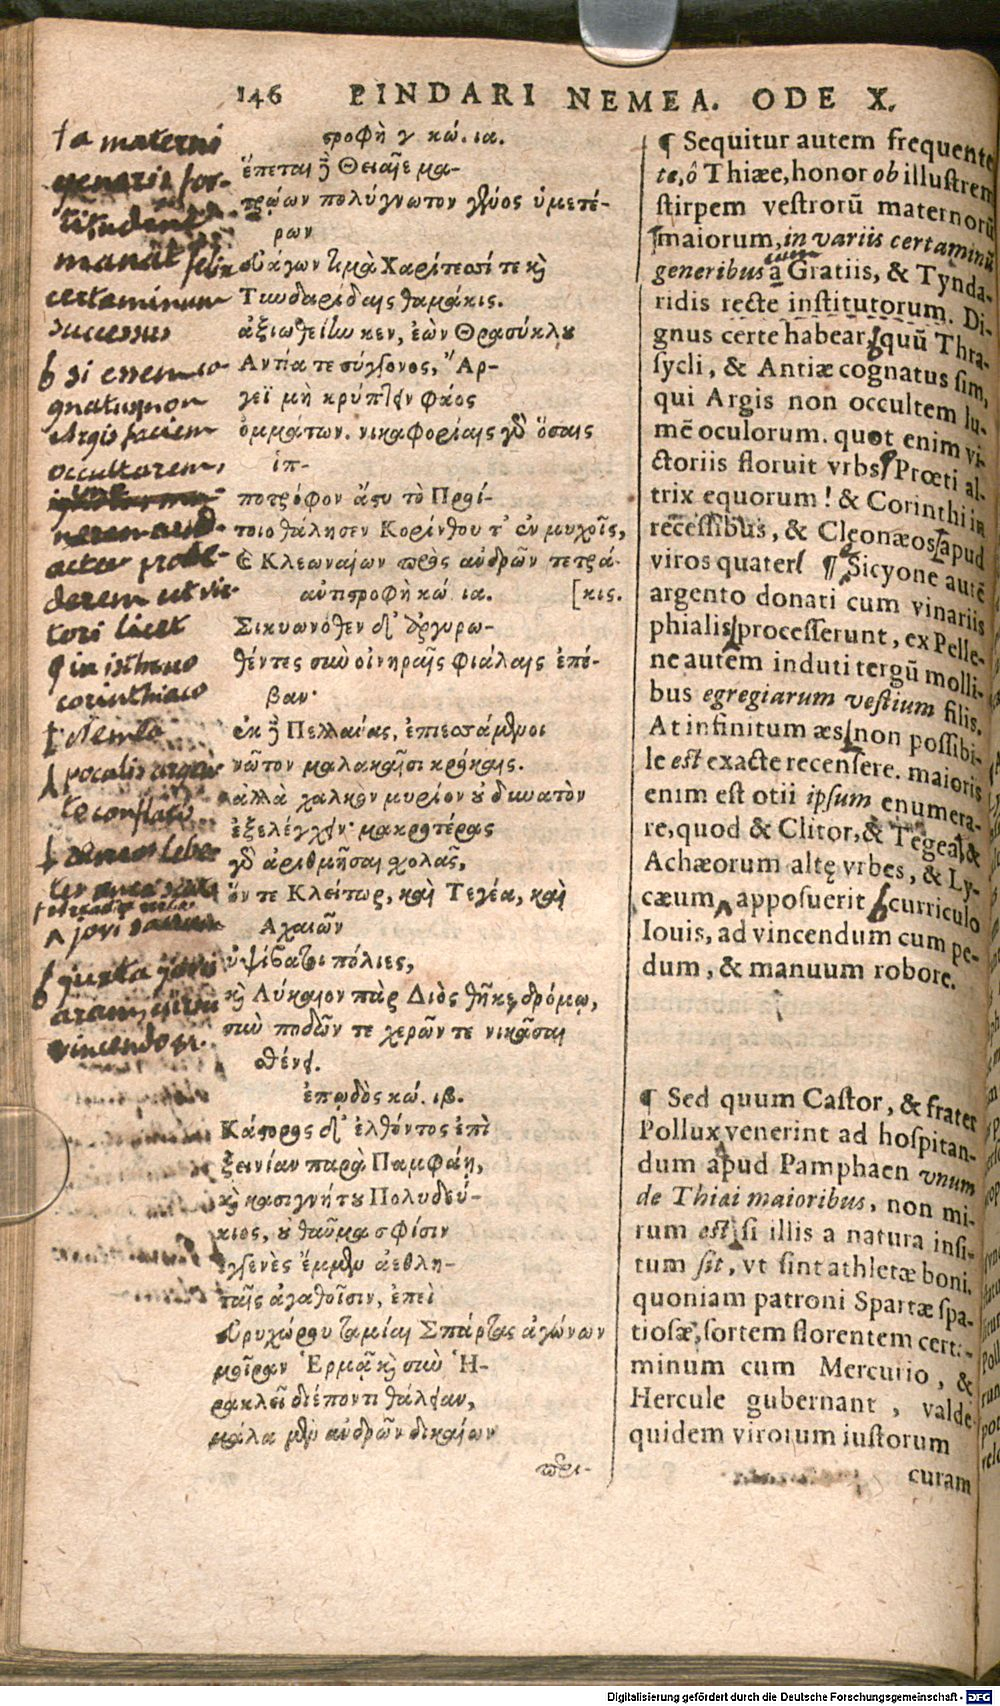 146 PINDARI NEMEA. ODE X.
στροφὴ γ κώ. ια.
ἕπεται ἢ Θειαῖε μα-
τρώων πολύγνωτον γένος ὑμετέ-
ρων
εὐάγων τιμὰ Χαρίτεσσί τε καὶ
Τυνδαρίδαις θαμάκις.
ἀξιωθείην κεν, ἐὼν Θρασύκλου
Ἀντία τε σύγγονος, Ἄρ-
γεϊ μὴ κρύπτειν φάος
ὀμμάτων. νικαφορίαις γὰρ ὅσαις
ἱπ-
ποτρόφον ἄστυ τὸ Προί-
τοιο θάλησεν Κορίνθου τ' ἐν μυχοῖς,
καὶ Κλεωναίων πρὸς ἀνδρῶν τετρά-
ἀντιστροφὴ κώ. ια. [κις.
Σικυωνόθεν δ' ἀργυρω-
θέντες σὺν οἰνηραῖς φιάλαις ἐπέ-
βαν·
ἐκ ἢ Πελλαίας, ἐπιεσσάμενοι
νῶτον μαλακαῖσι κρόκαις.
ἀλλὰ χαλκὸν μυρίον οὐ δυνατὸν
ἐξελέγχειν· μακροτέρας
γὰρ ἀριθμῆσαι σχολᾶς,
ὅν τε Κλείτωρ, καὶ Τεγέα, καὶ
Ἀχαιῶν
ὑψίβατοι πόλιες,
καὶ Λύκαιον πὰρ Διὸς θῆκε δρόμῳ,
σὺν ποδῶν τε χερῶν τε νικᾶσαι
σθένει.
ἐπῳδὸς κώ. ιβ.
Κάστορος δ' ἐλθόντος ἐπὶ
ξεινίαν παρὰ Παμφάη,
καὶ κασιγνήτου Πολυδεύ-
κεος, οὐ θαῦμα σφίσιν
ἐγγενὲς ἔμμεν ἀεθλη-
ταῖς ἀγαθοῖσιν, ἐπεὶ
εὐρυχόρου ταμίαι Σπάρτας ἀγώνων
μοῖραν Ἑρμᾷ καὶ σὺν Ἡ-
ρακλεῖ διέποντι θάλειαν,
μάλα μὲν ἀνδρῶν δικαίων
περι-
†a materni
generis for-
manat felix
certaminum
successus
si essem co-
gnatus, non
Argis faciem
occultarem,
derem ut vic
tori licet
in isthmo
corinthiaco
¶ Sequitur autem frequente
te, ô Thiæe, honor ob illustrem
stirpem vestrorũ maternorũ
maiorum, in variis certaminũ
generibus à Gratiis, & Tynda-
ridis recte institutorum. Di-
gnus certe habear, quũ Thra-
sycli, & Antiæ cognatus sim,
qui Argis non occultem lu-
mẽ oculorum. quot enim vi-
ctoriis floruit vrbs Prœti al-
trix equorum! & Corinthi in
recessibus, & Cleonæos apud
viros quater! ¶ Sicyone autẽ
argento donati cum vinariis
phialis processerunt, ex Pelle-
ne autem induti tergũ molli-
bus egregiarum vestium filis.
At infinitum æs non possibi-
le est exacte recensere. maioris
enim est otii ipsum enumera-
re, quod & Clitor, & Tegea, &
Achæorum altę vrbes, & Ly-
cæum apposuerit curriculo
Iouis, ad vincendum cum pe-
dum, & manuum robore.
¶ Sed quum Castor, & frater
Pollux venerint ad hospitan-
dum apud Pamphaen vnum
de Thiæi maioribus, non mi-
rum est, si illis a natura insi-
tum sit, vt sint athletæ boni.
quoniam patroni Spartæ spa-
tiosæ, sortem florentem certa-
minum cum Mercurio, &
Hercule gubernant, valde
quidem virorum iustorum
curam
Digitalisierung gefördert durch die Deutsche Forschungsgemeinschaft - DFG